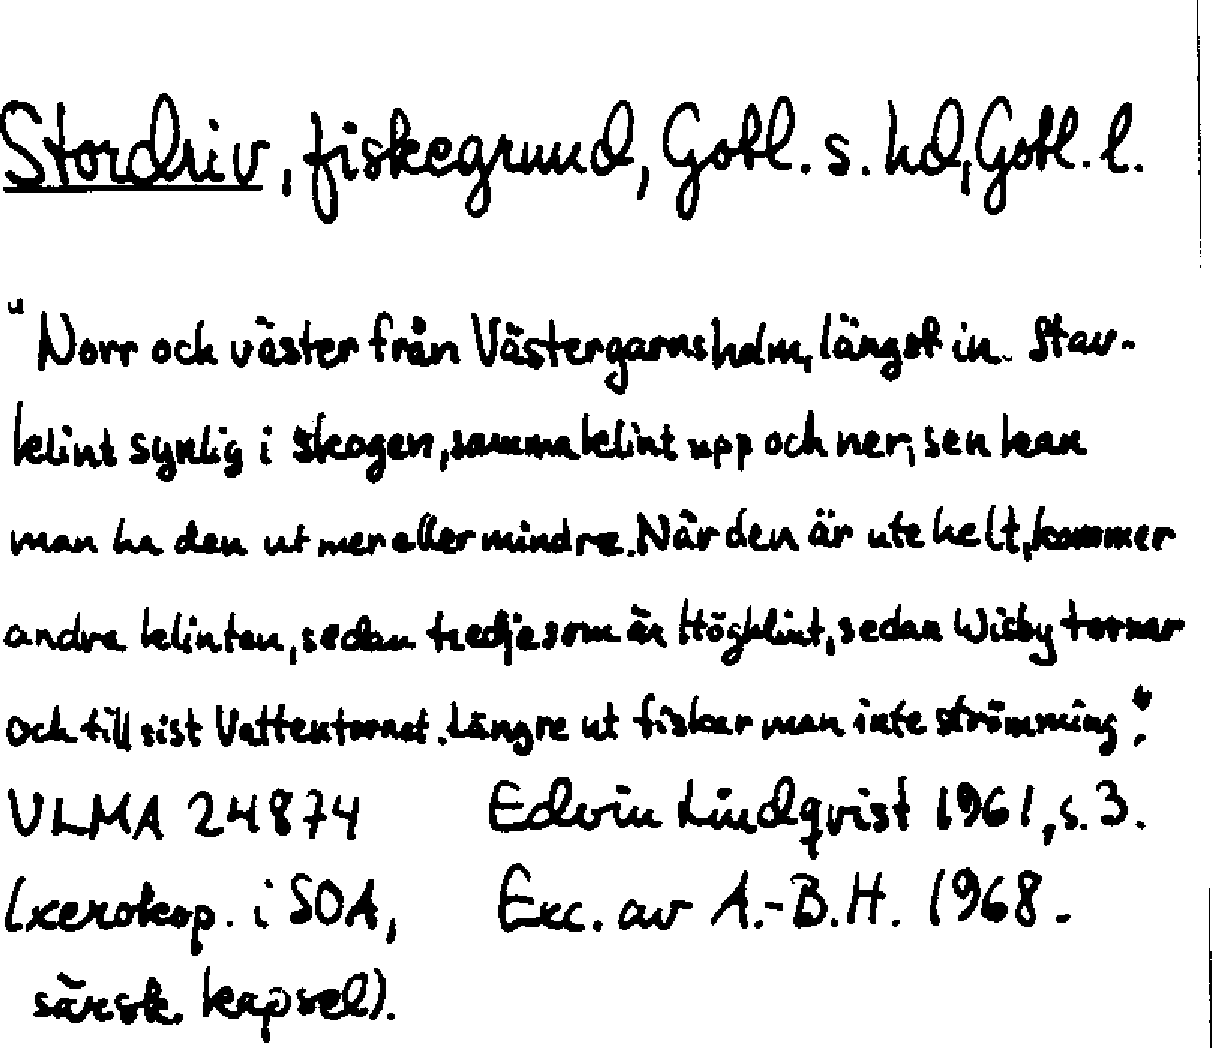 Stordriv, fiskegrund, Gotl. s. hd, Gotl. l.
"Norr och väster från Västergarnsholm, längst in. Stav-
klint synlig i skogen, samma klint upp och ner, sen kan
man ha den ut mer eller mindre. När den är ute helt, kommer
andra klinten, sedan tredje som är Högklint, sedan Wisby tornar
och till sist Vattentornet. Längre ut fiskar man inte strömming".
ULMA 24874 Edvin Lindqvist 1961, s. 3.
(xerokop. i SOA, Exc. av A.-B.H. 1968.
särsk. kapsel).